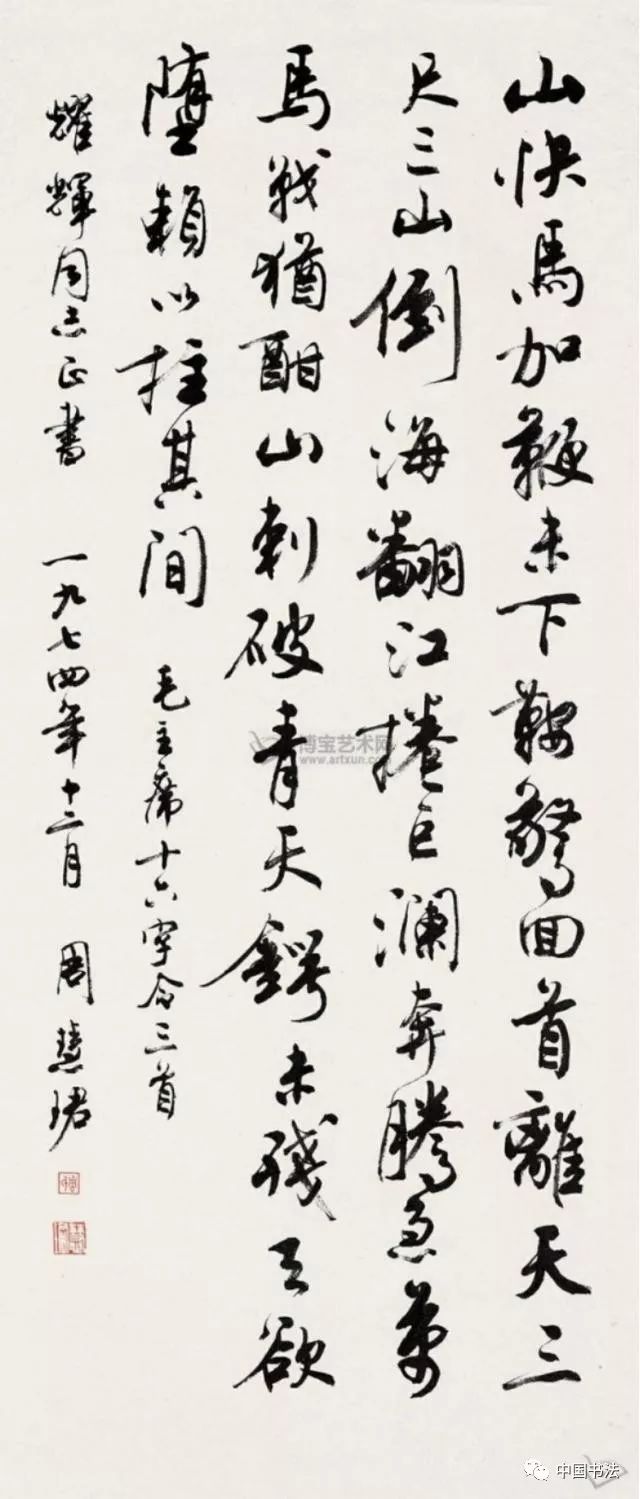 山快馬加鞭未下鞍驚回首離天三
尺三山倒海翻江捲巨瀾奔騰急萬
馬戰猶酣山刺破青天鍔未殘天欲
墮賴以拄其間 毛主席十六字令三首
耀輝同志正書 一九七四年十二月 周慧珺
博宝艺术网
www.artxun.com
中国书法